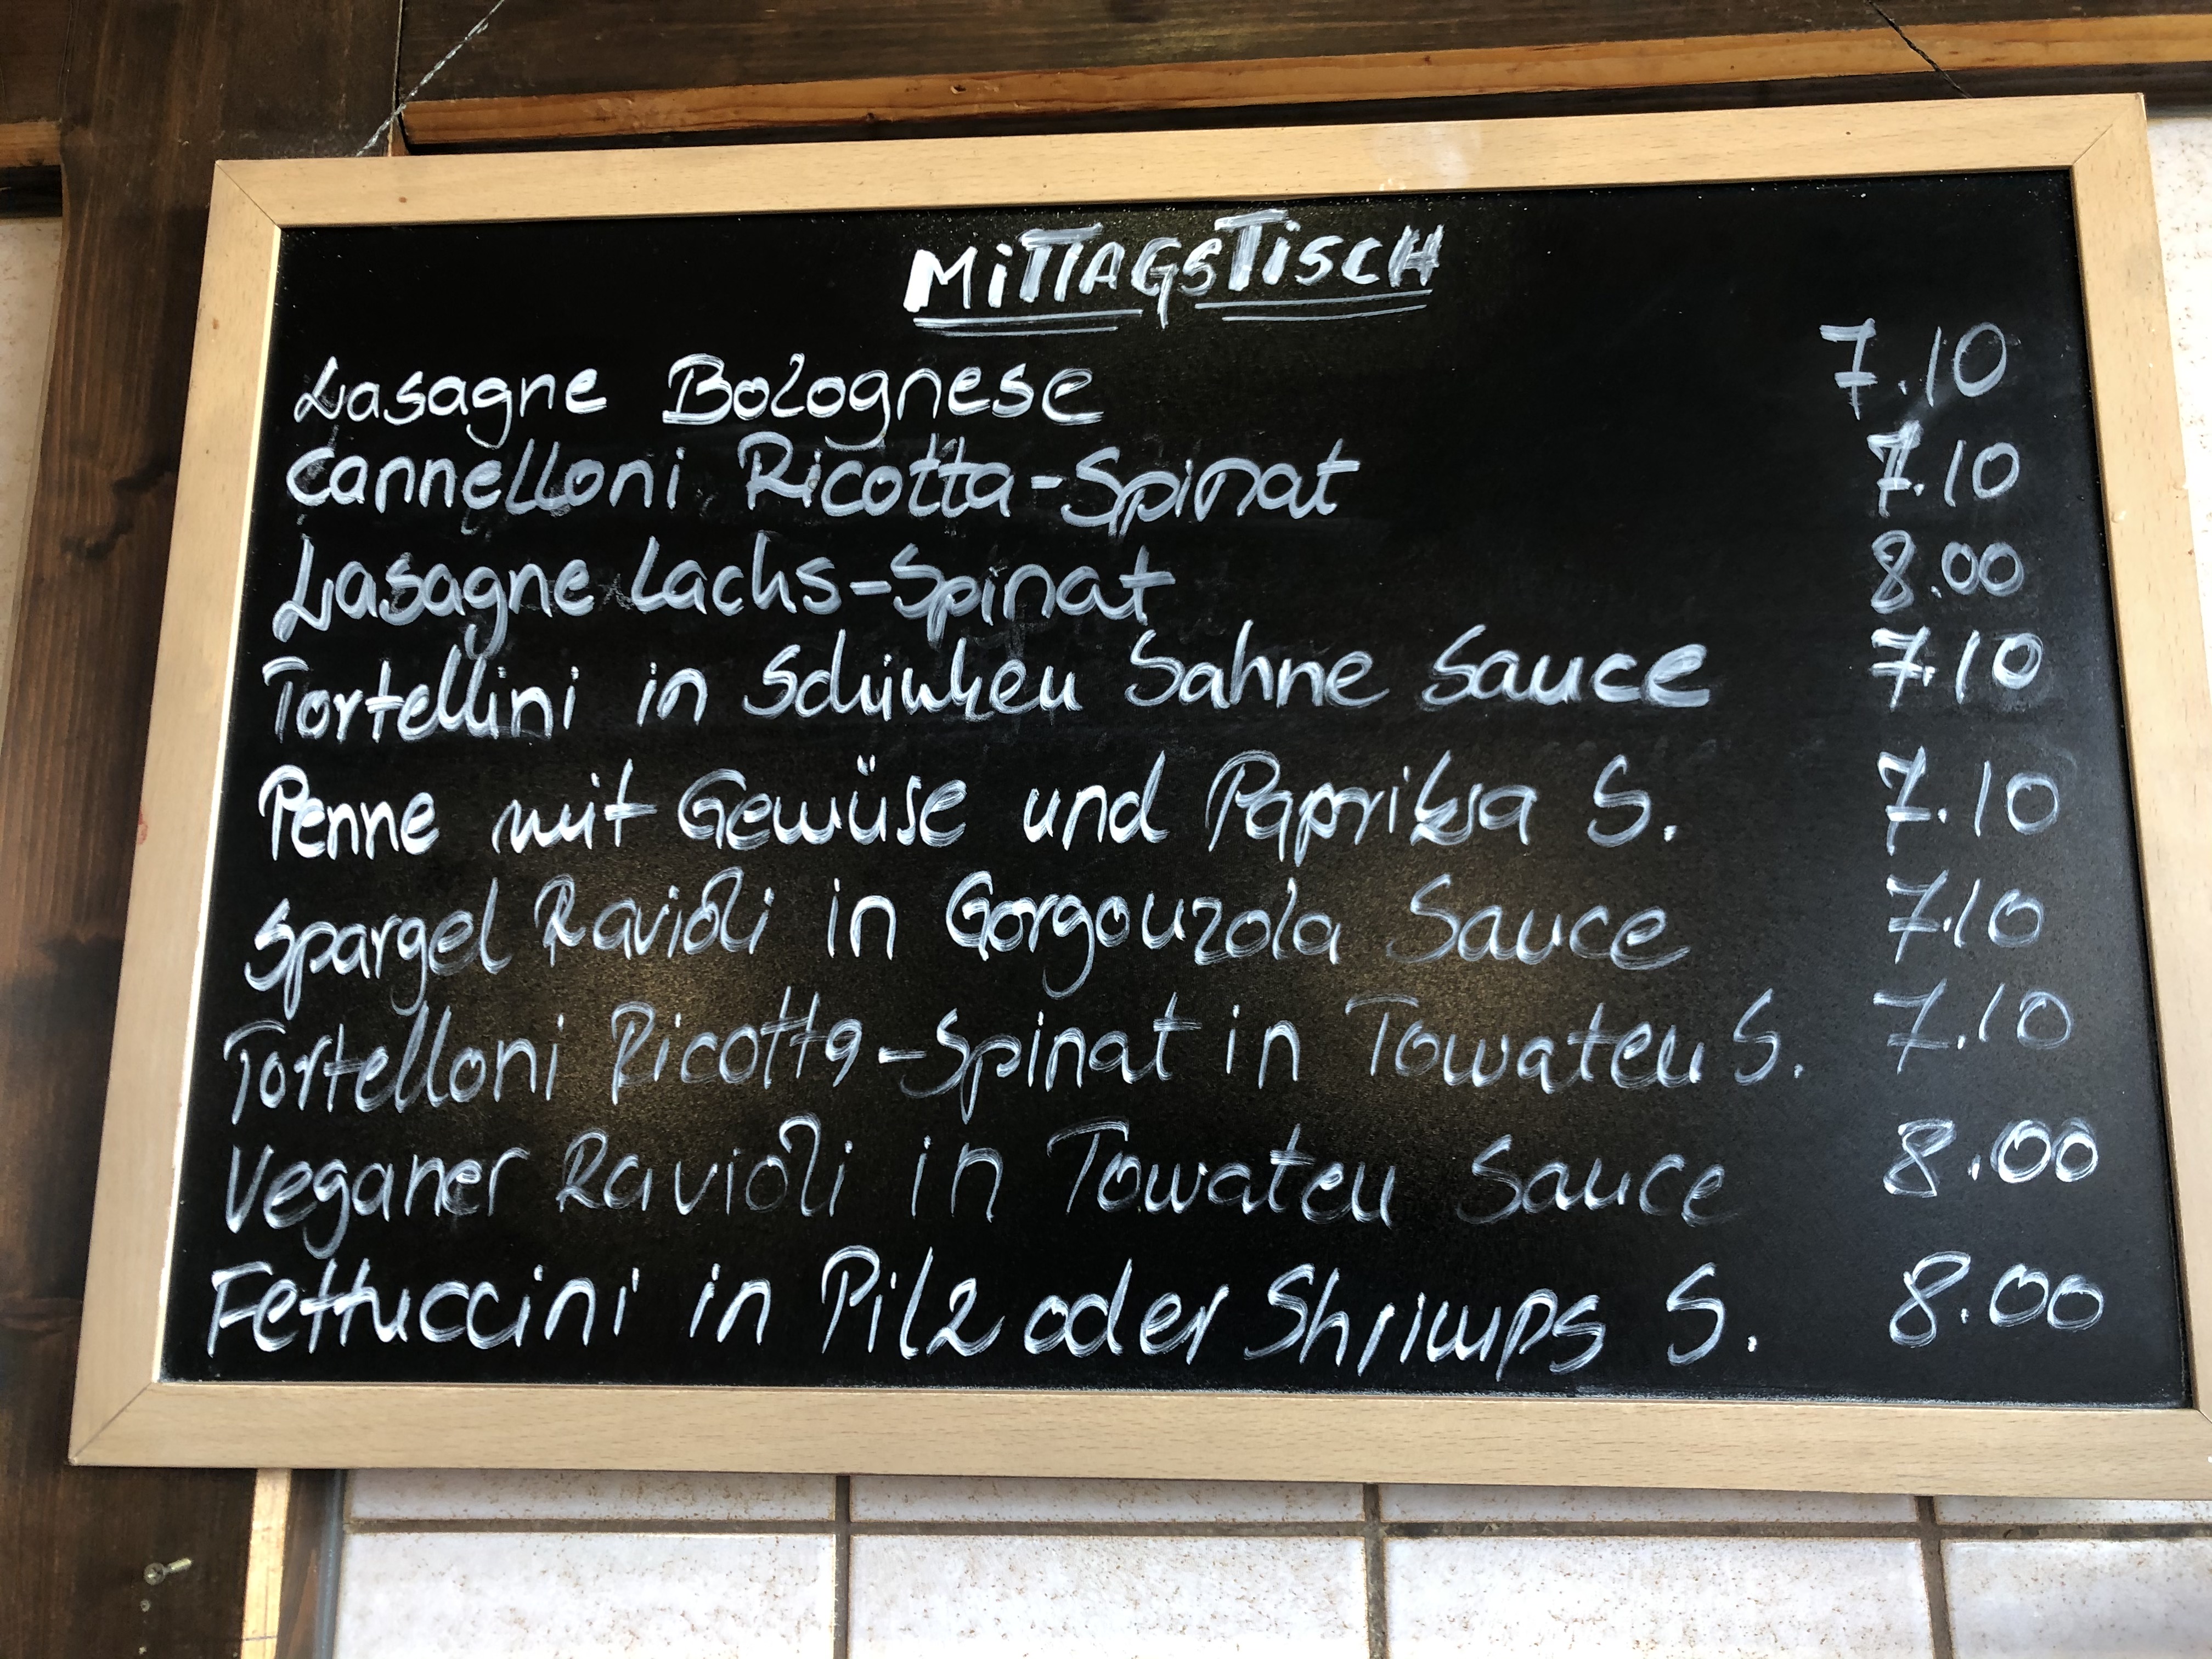 MiTTAGSTiSCH
Lasagne Bolognese 7.10
Cannelloni Ricotta-Spinat 7.10
Lasagne Lachs-Spinat 8.00
Tortellini in Schinken Sahne Sauce 7.10
Penne mit Gewüse und Paprika S. 7.10
Spargel Ravioli in Gorgonzola Sauce 7.10
Tortelloni Ricotta-Spinat in Tomaten S. 7.10
Veganer Ravioli in Tomaten Sauce 8.00
Fettuccini in Pilz oder Shrimps S. 8.00